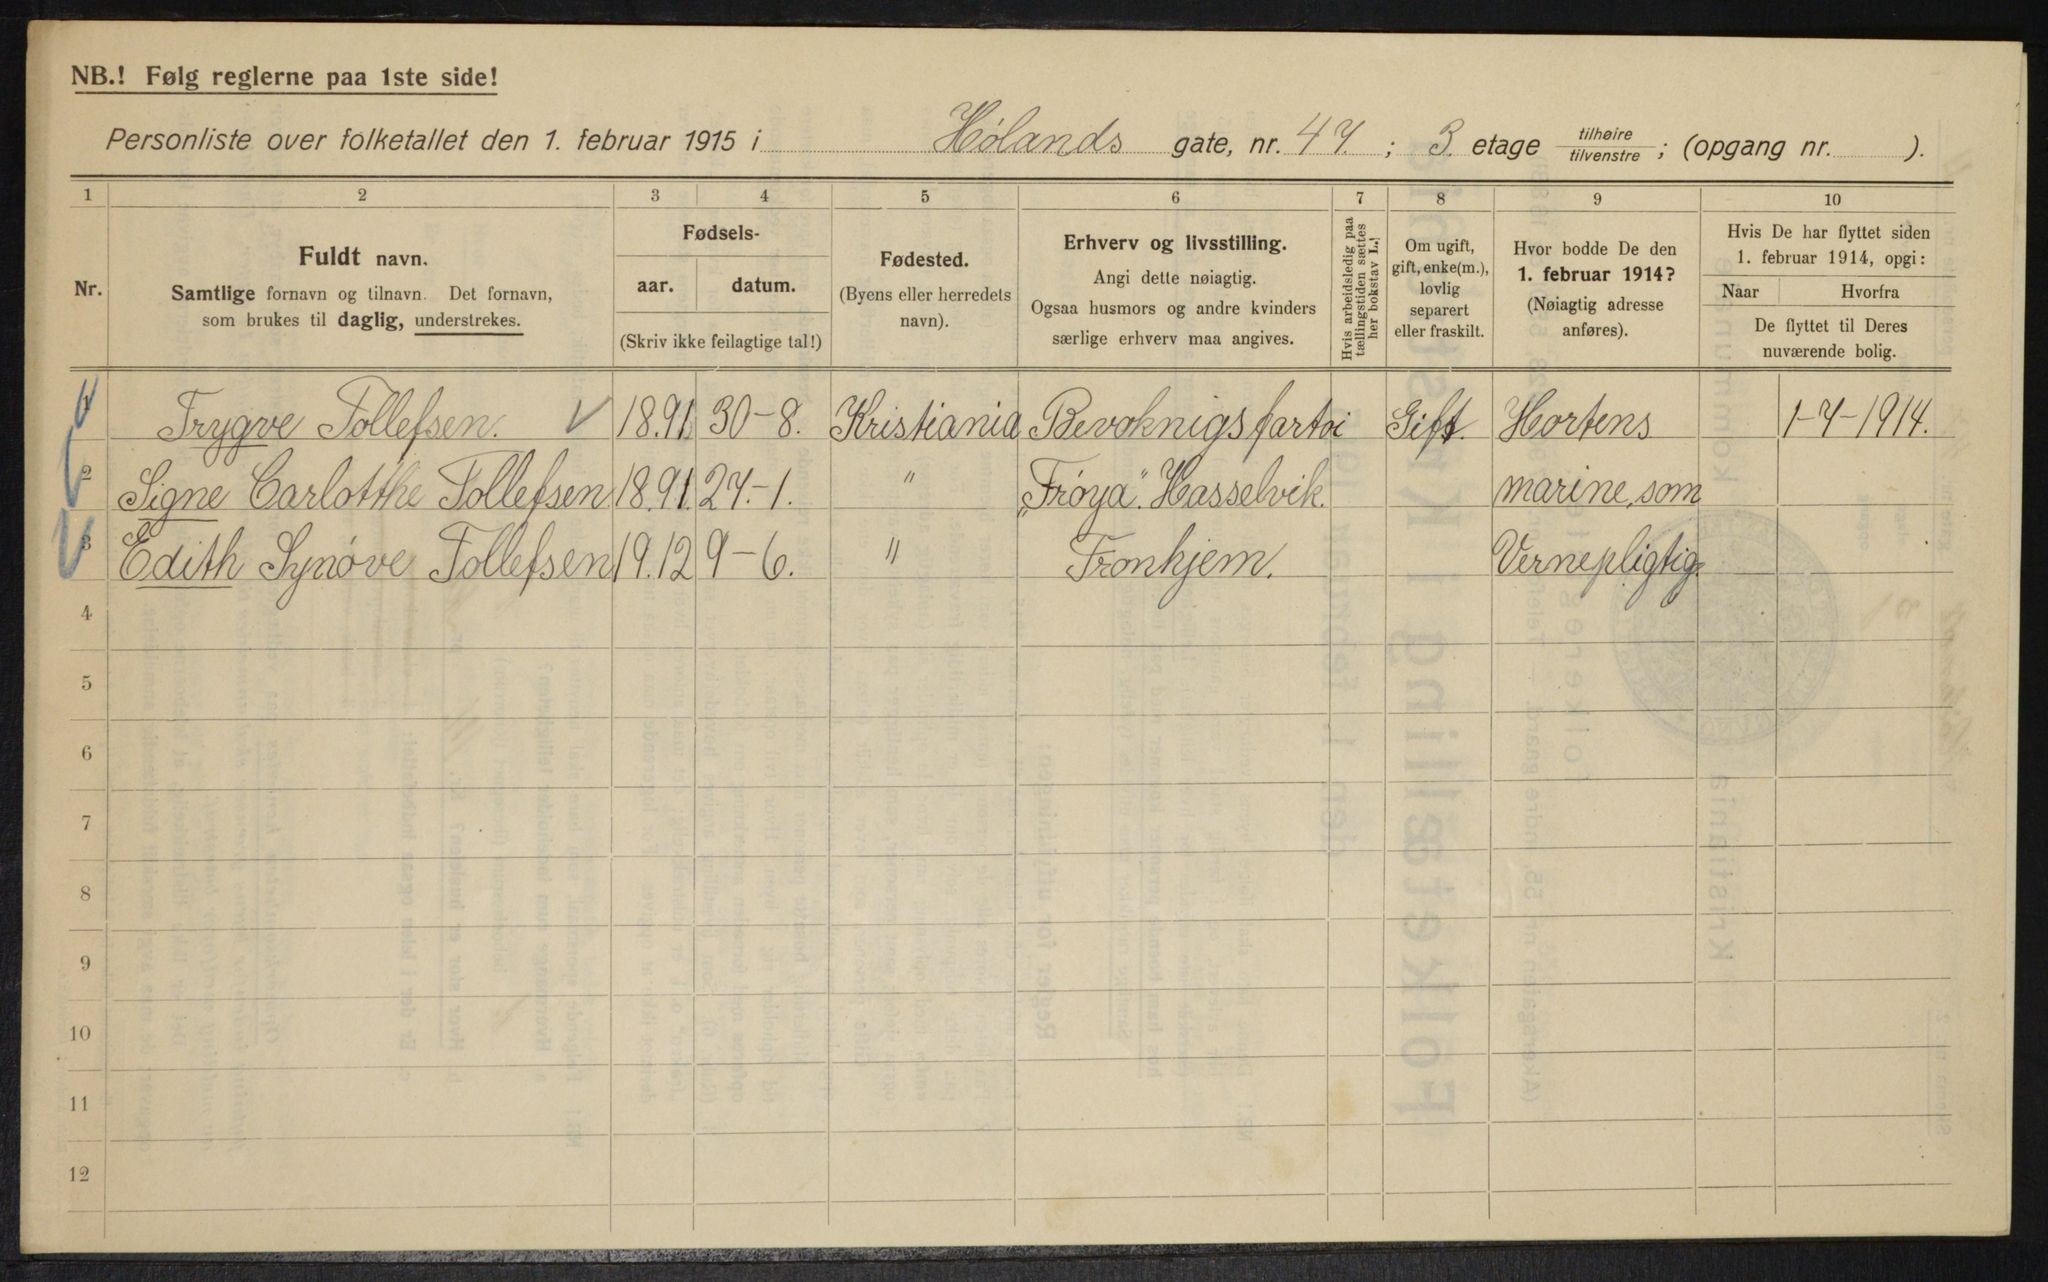 NB.! Følg reglerne paa 1ste side!
Personliste over folketallet den 1. februar 1915 i Hølands gate, nr. 47. ; 3. etage tilhøire/tilvenstre ; (opgang nr. ).
1 2 3 4 5 6 7 8 9 10
Nr.
Fuldt navn.
Samtlige fornavn og tilnavn. Det fornavn,
som brukes til daglig, understrekes.
Fødsels-
aar. datum.
(Skriv ikke feilagtige tal!)
Fødested.
(Byens eller herredets
navn).
Erhverv og livsstilling.
Angi dette nøiagtig.
Ogsaa husmors og andre kvinders
særlige erhverv maa angives.
Hvis arbeidsledig paa
tællingstiden sættes
her bokstav L.!
Om ugift,
gift, enke(m.),
lovlig
separert
eller fraskilt.
Hvor bodde De den
1. februar 1914?
(Nøiagtig adresse
anføres).
Hvis De har flyttet siden
1. februar 1914, opgi:
Naar Hvorfra
De flyttet til Deres
nuværende bolig.
1 Trygve Tollefsen. 18.91. 30-8. Kristiania Bevoknigsfartøi Gift. Hortens 1-7-1914.
2 Signe Carlotthe Tollefsen 18.91. 27.-1. " "Frøya". Hasselvik. marine, som
3 Edith Synøve Tollefsen 19.12 9-6. " Tronhjem. Vernepligtig.
4
5
6
7
8
9
10
11
12